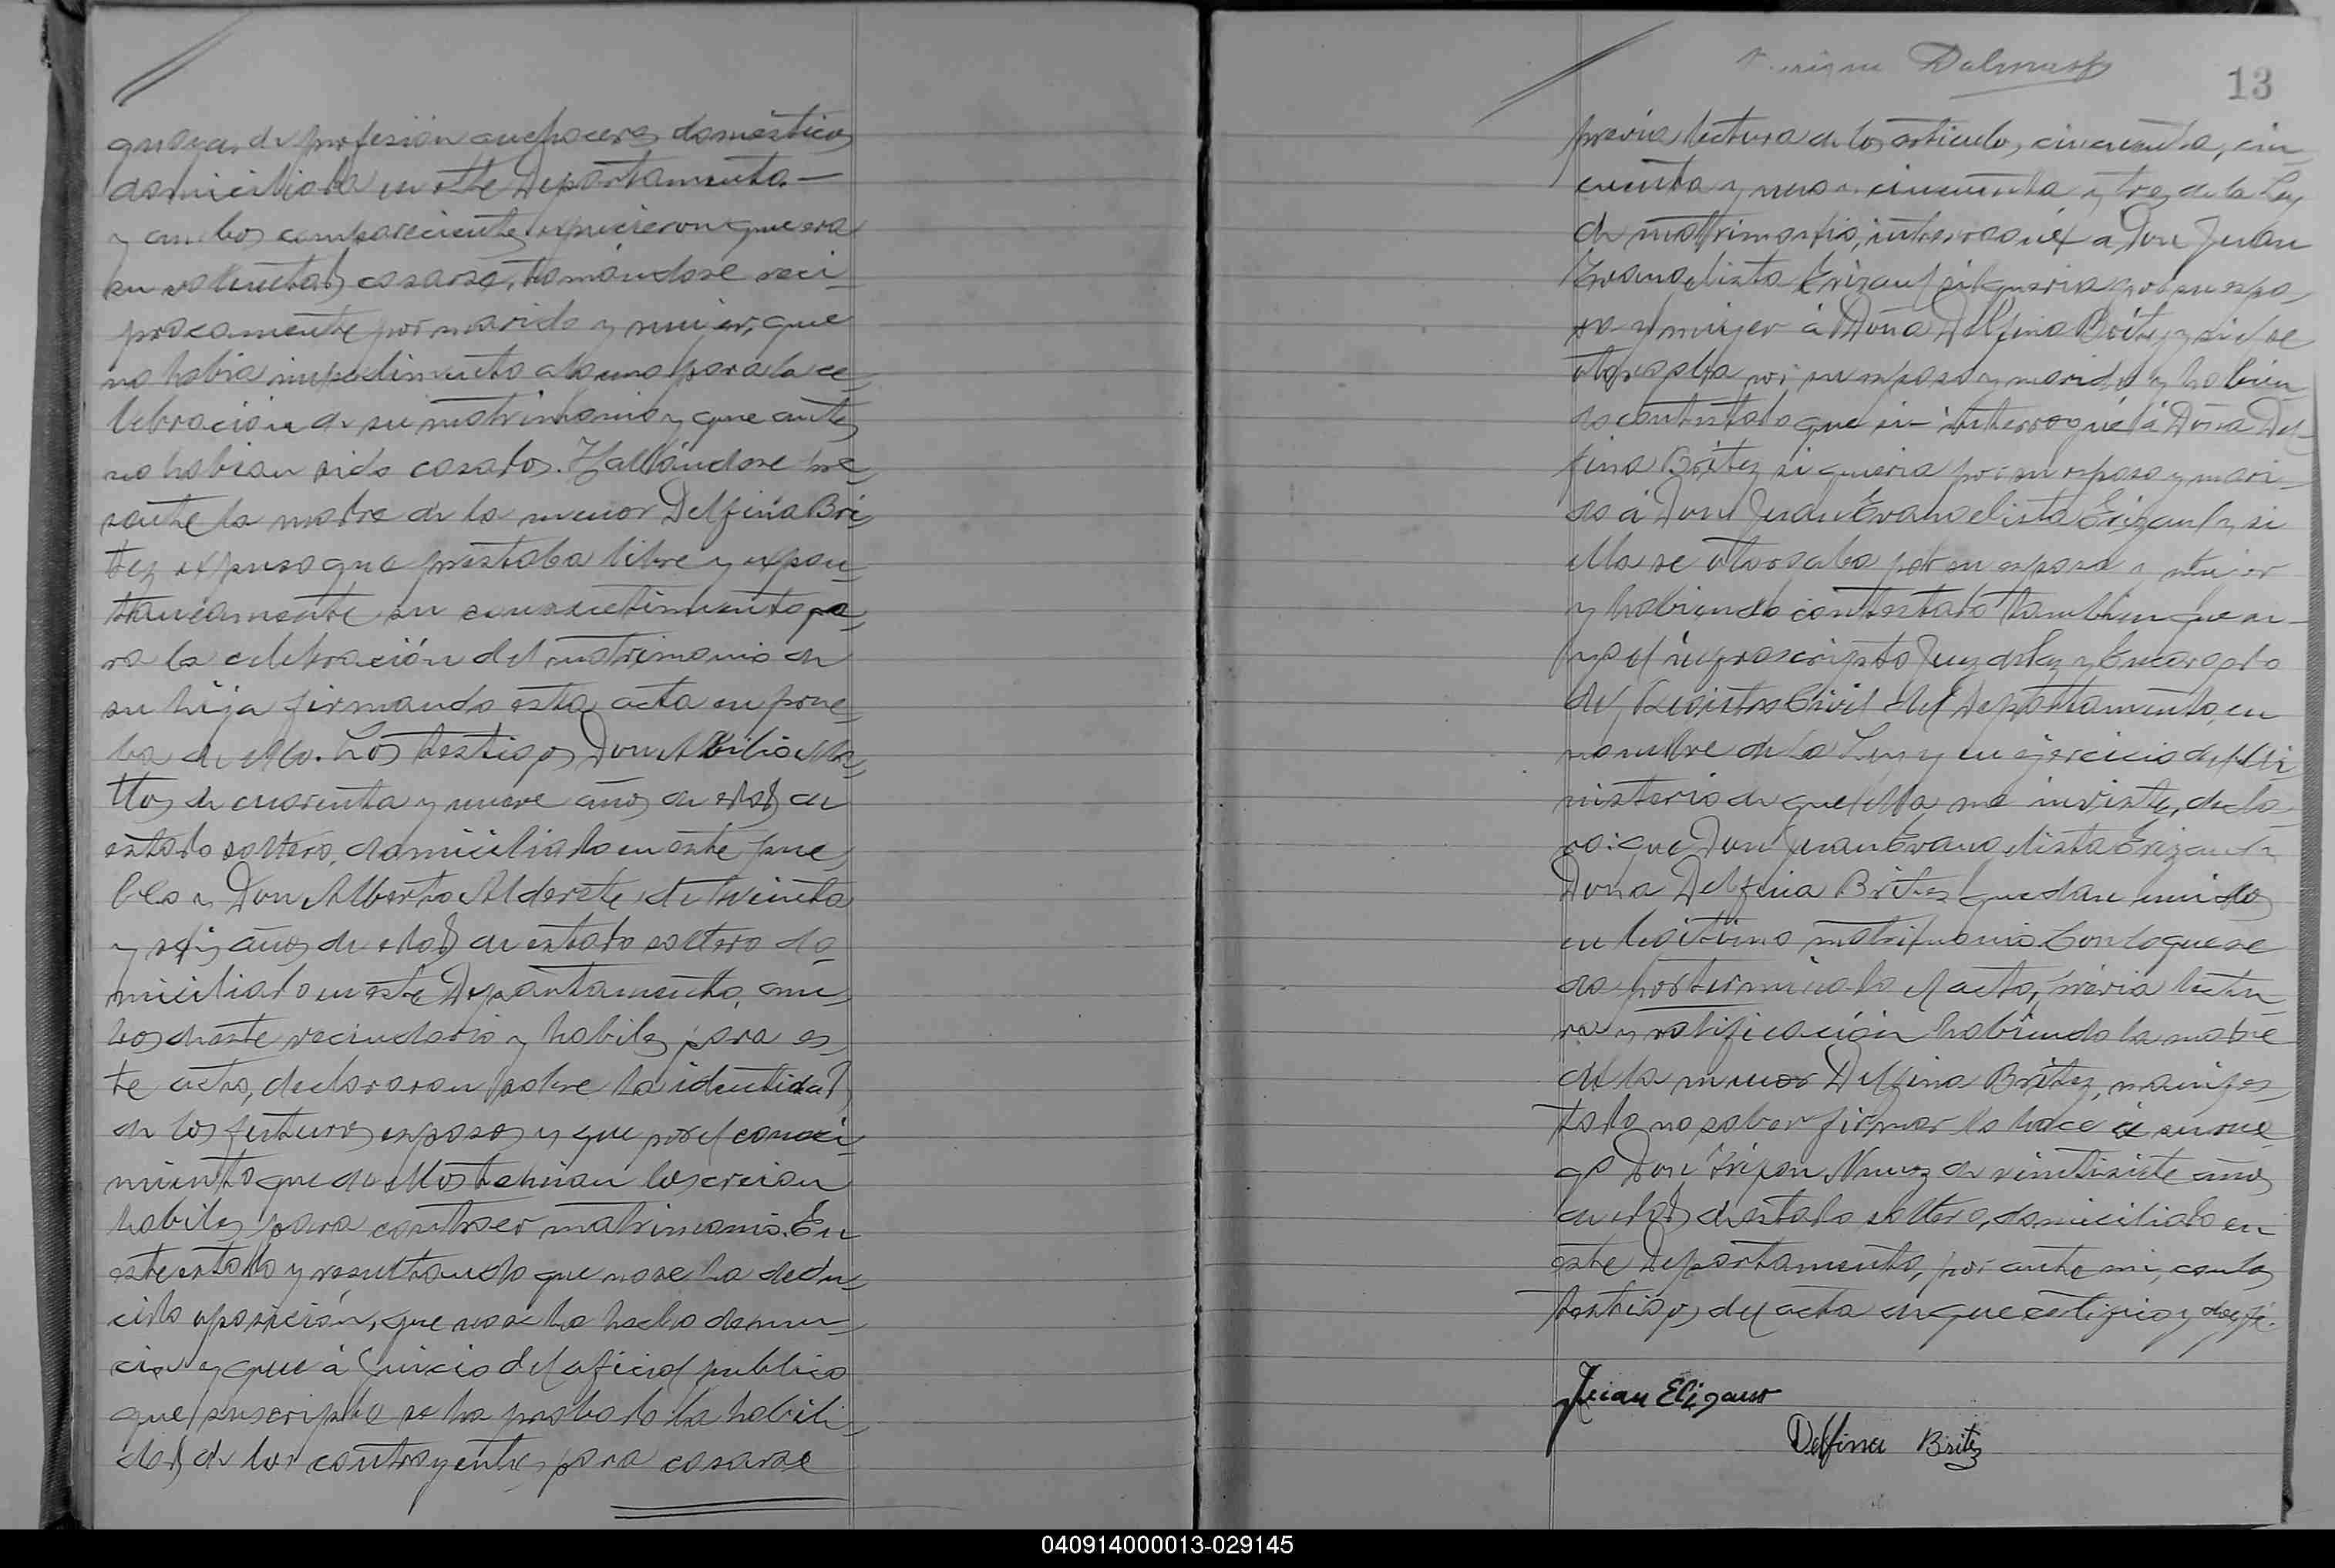 guaya, de profesión quehaceres domésticos
domiciliada en este Departamento.—
y ambos comparecientes expusieron que era
su voluntad casarse, tomándose reci-
procamente por marido y mujer, que
no habia impedimento alguno para la ce-
lebracion de su matrimonio y que antes
no habian sido casados. Hallándose pre-
sente la madre de la menor Delfina Bri-
tez expuso que prestaba libre y expon-
taneamente su consentimiento pa-
ra la celebración del matrimonio de
su hija firmando esta acta en prue-
ba de ello. Los testigos Don Abilio
de cuarenta y nueve años de edad de
estado soltero, domiciliado en este pue-
blo y Don Alberto Alderete, de treinta
y seis años de edad de estado soltero do-
miciliado en este Departamento, am-
bos de este vecindario y habiles para es-
te acto, declararon sobre la identidad
de los futuros esposos y que por el conoci-
miento que de ellos tenian los creian
habiles para contraer matrimonio. En
este estado y resultando que no se ha dedu-
cido oposición, que no se ha hecho denun-
cia y que á juicio del oficial publico
que suscripto se ha probado la habili-
dad de los contrayentes para casarse
Dalmasy
13
previa lectura de los articulos, cincuenta, cin-
cuenta y uno y cincuenta y tres de la Ley
de matrimonio, interrogué a Don Juan
Evangelista Erizaul si queria por su espo-
sa y mujer á Doña Delfina Britez y si él se
otorgaba por su esposo y marido y habien-
do contestado que si— interrogué á Doña Del-
fina Britez si queria por su esposo y mari-
do á Don Juan Evangelista Erizaul y si
ella se otorgaba por su esposa y mujer
y habiendo contestado tambien que si—
yo el infrascripto Juez de Paz y Encargado
del Registro Civil del Departamento, en
nombre de la Ley y en ejercicio del Mi-
nisterio de que ella me inviste, decla-
ro: que Don Juan Evangelista Erizaul y
Doña Delfina Britez quedan unidos
en legitimo matrimonio. Con lo que se
da por terminado el acto, previa lectu-
ra y ratificación habiendo la madre
de la menor Delfina Britez, manifes-
tado no saber firmar lo hace á su rue-
go Don Nunez de veintisiete años
de edad de estado soltero, domiciliado en
este Departamento, por ante mi, con los
testigos del acta de que certifico y doy fé.
Juan Elizaur
Delfina Britez
040914000013-029145